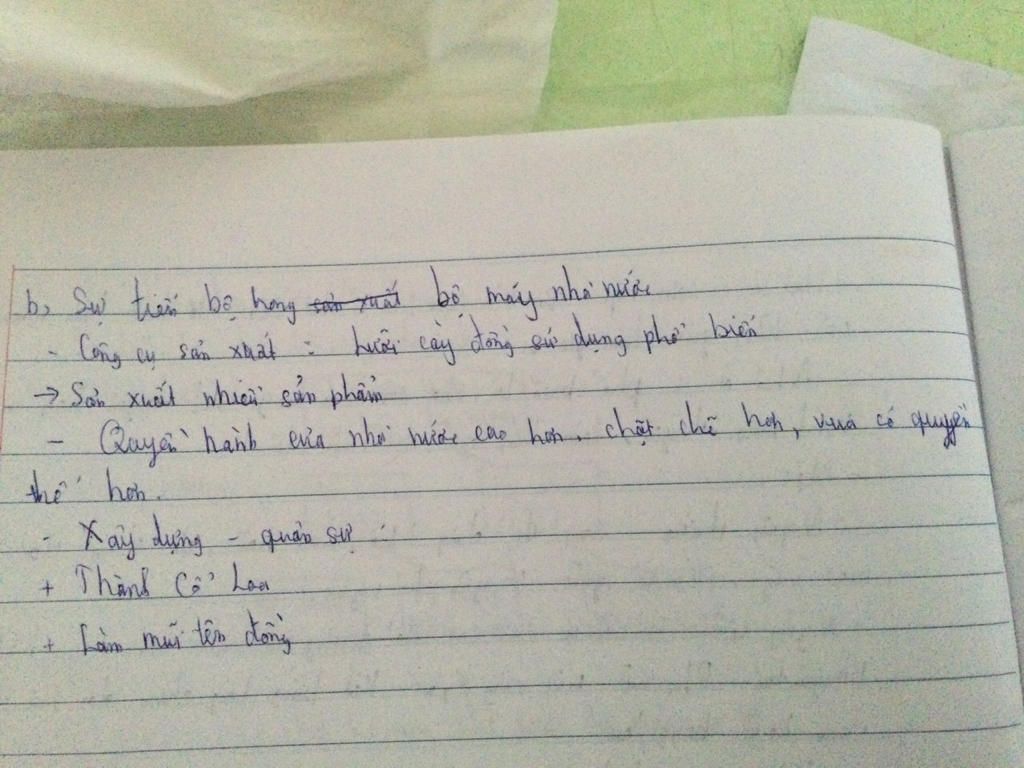 b, Sự tiến bộ trong sản xuất bộ máy nhà nước
- Công cụ sản xuất : Lưỡi cày đồng sử dụng phổ biến
→ Sản xuất nhiều sản phẩm
- Quyền hành của nhà nước cao hơn, chặt chẽ hơn, vua có quyền
thế hơn.
- Xây dựng - quân sự :
+ Thành Cổ Loa
+ Làm mũi tên đồng